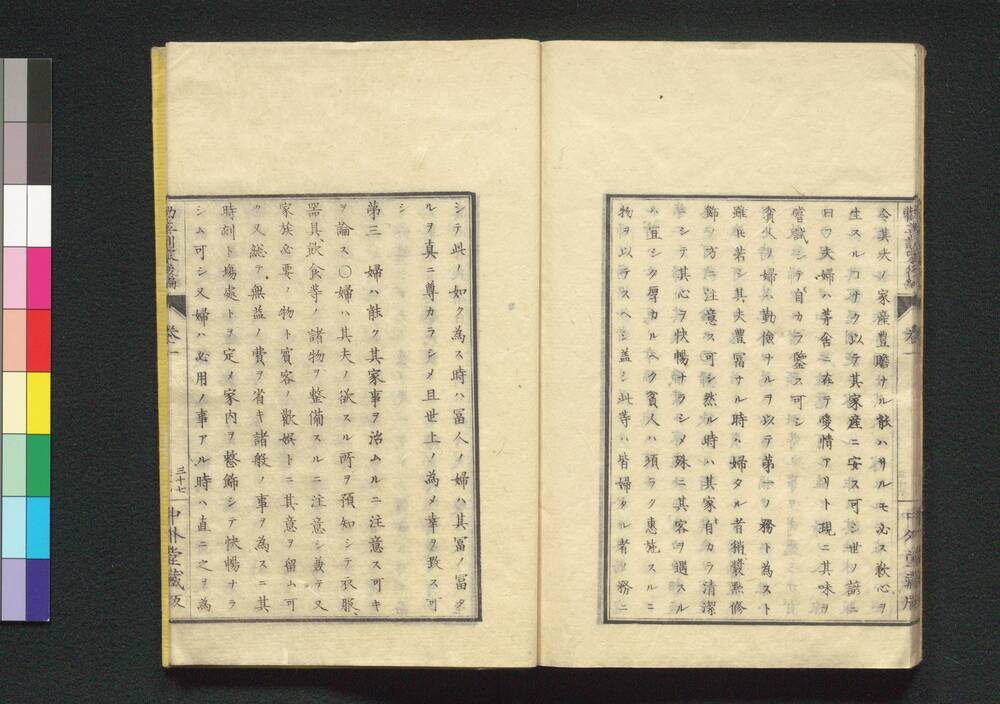 今其夫ノ家産豊贍ナル能ハサルモ必ス歉心ヲ
生スルコナク以テ其家産ニ安ス可シ世ノ諺ニ
曰フ夫婦ハ茅舎ニ在テ愛情アリト現ニ其味ヲ
嘗識シテ自カラ鑒ス可シ
貧父ノ婦ハ勤儉ナルヲ以テ第一ノ務ト為スト
雖𪜈若シ其夫豊冨ナル時ハ婦タル者稍裝㸃修
飾ノ方ニ注意ス可シ然ル時ハ其家自カラ清潔
ニシテ其心ヲ快暢ナラシメ殊ニ其客ヲ遇スル
ハ宜シク厚カルヘク貧人ハ須ラク惠施スルニ
物ヲ以テスヘシ盖シ此等ハ皆婦タル者ノ務ニ
シテ此ノ如ク為ス時ハ冨人ノ婦ハ其冨ノ冨タ
ルヲ真ニ尊カラシメ且世上ノ為メ幸ヲ致ス可
シ
第三　婦ハ能ク其家事ヲ治ムルニ注意ス可キ
ヲ論ス〇婦ハ其夫ノ欲スル所ヲ預知シテ衣服、
器具、飲食等ノ諸物ヲ整備スルニ注意シ裁テ又
家族必要ノ物ト賓客ノ歡娯トニ其意ヲ留ム可
ク又総テ無益ノ費ヲ省キ諸般ノ事ヲ為スニ其
時刻ト塲處トヲ定メ家内ヲ整飾シテ快暢ナラ
シム可シ又婦ハ必用ノ事アル時ハ直ニ之ヲ為
卷一
三十七
中外堂藏版